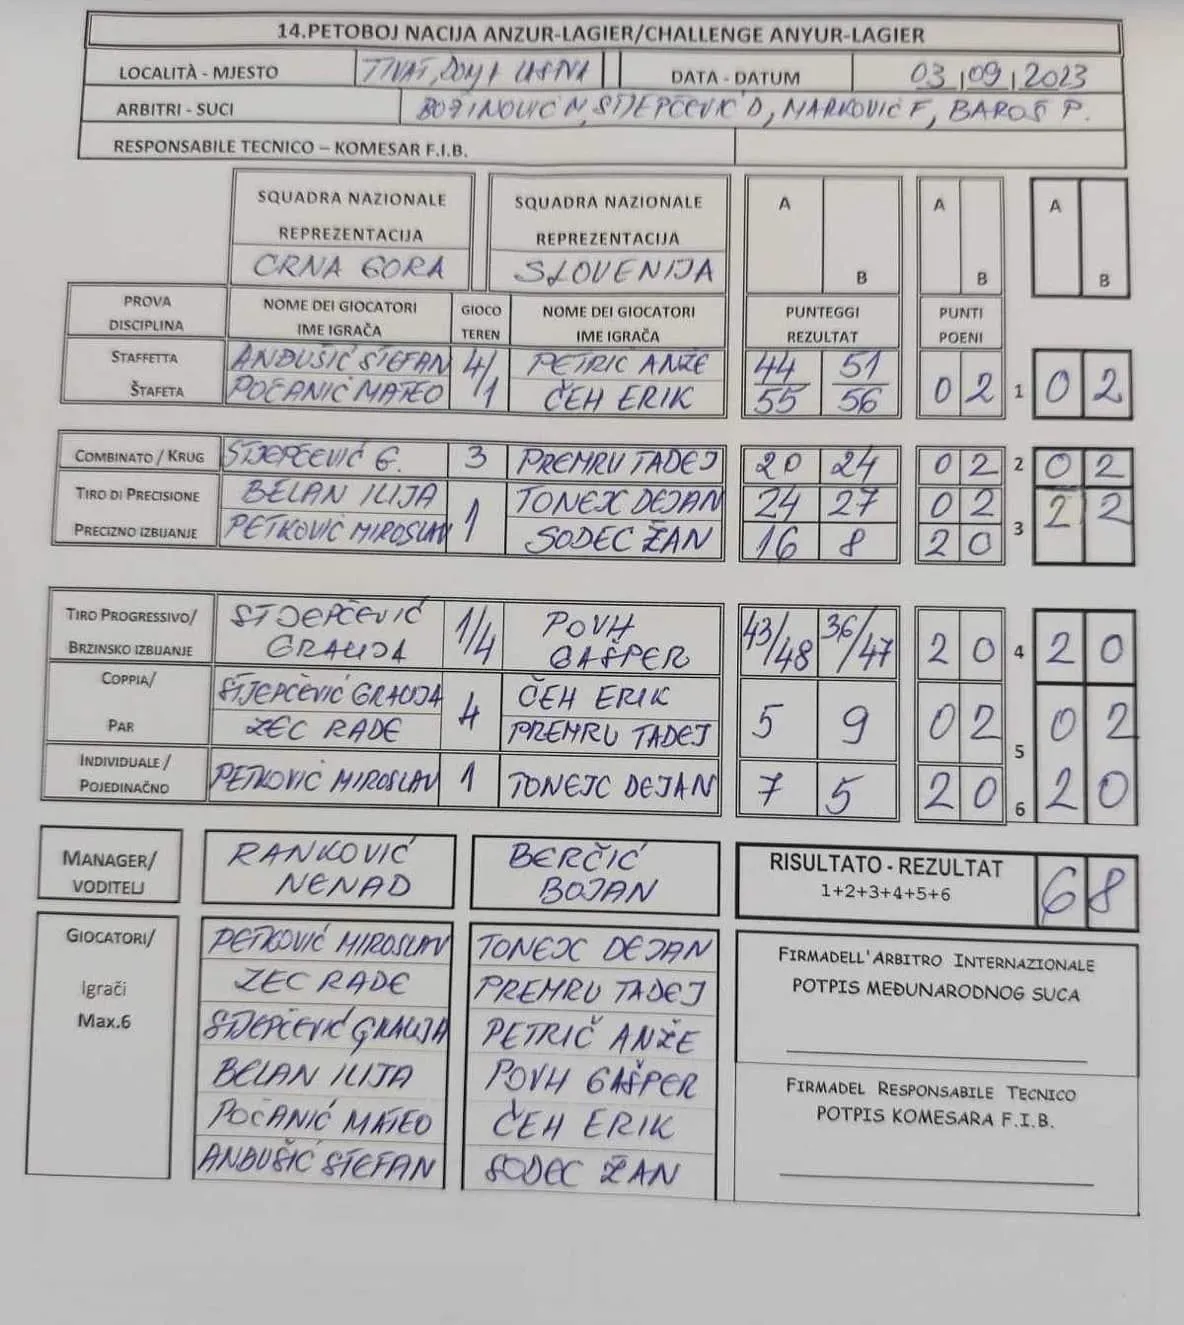 14.PETOBOJ NACIJA ANZUR-LAGIER/CHALLENGE ANYUR-LAGIER
LOCALITÀ - MJESTO TIVAT, DATA - DATUM 03|09|2023
ARBITRI - SUCI BOŽINOVIĆ N, STJEPČEVIĆ D, MARKOVIĆ F, BAROŠ P.
RESPONSABILE TECNICO – KOMESAR F.I.B.
SQUADRA NAZIONALE SQUADRA NAZIONALE A A A
REPREZENTACIJA REPREZENTACIJA
CRNA GORA SLOVENIJA B B B
PROVA NOME DEI GIOCATORI GIOCO NOME DEI GIOCATORI PUNTEGGI PUNTI
DISCIPLINA IME IGRAČA TEREN IME IGRAČA REZULTAT POENI
STAFFETTA ANĐUŠIĆ STEFAN 4/1 PETRIČ ANŽE 44 51
ŠTAFETA POČANIĆ MATEO ČEH ERIK 55 56 0 2 1 0 2
COMBINATO / KRUG STJEPČEVIĆ G. 3 PREMRU TADEJ 20 24 0 2 2 0 2
TIRO DI PRECISIONE BELAN ILIJA 1 TONEJC DEJAN 24 27 0 2 3 2 2
PRECIZNO IZBIJANJE PETKOVIĆ MIROSLAV SODEC ŽAN 16 8 2 0
TIRO PROGRESSIVO/ STJEPČEVIĆ 1/4 POVH 43/48 36/47 2 0 4 2 0
BRZINSKO IZBIJANJE GRACIJA GAŠPER
COPPIA/ STJEPČEVIĆ GRACIJA 4 ČEH ERIK 5 9 0 2 5 0 2
PAR ZEC RADE PREMRU TADEJ
INDIVIDUALE / PETKOVIĆ MIROSLAV 1 TONEJC DEJAN 7 5 2 0 6 2 0
POJEDINAČNO
MANAGER/ RANKOVIĆ BERČIĆ RISULTATO - REZULTAT 6 8
VODITELJ NENAD BOJAN 1+2+3+4+5+6
GIOCATORI/ PETKOVIĆ MIROSLAV TONEJC DEJAN FIRMADELL'ARBITRO INTERNAZIONALE
Igrači ZEC RADE PREMRU TADEJ POTPIS MEĐUNARODNOG SUCA
Max.6 STJEPČEVIĆ GRACIJA PETRIČ ANŽE
BELAN ILIJA POVH GAŠPER FIRMADEL RESPONSABILE TECNICO
POČANIĆ MATEO ČEH ERIK POTPIS KOMESARA F.I.B.
ANĐUŠIĆ STEFAN SODEC ŽAN